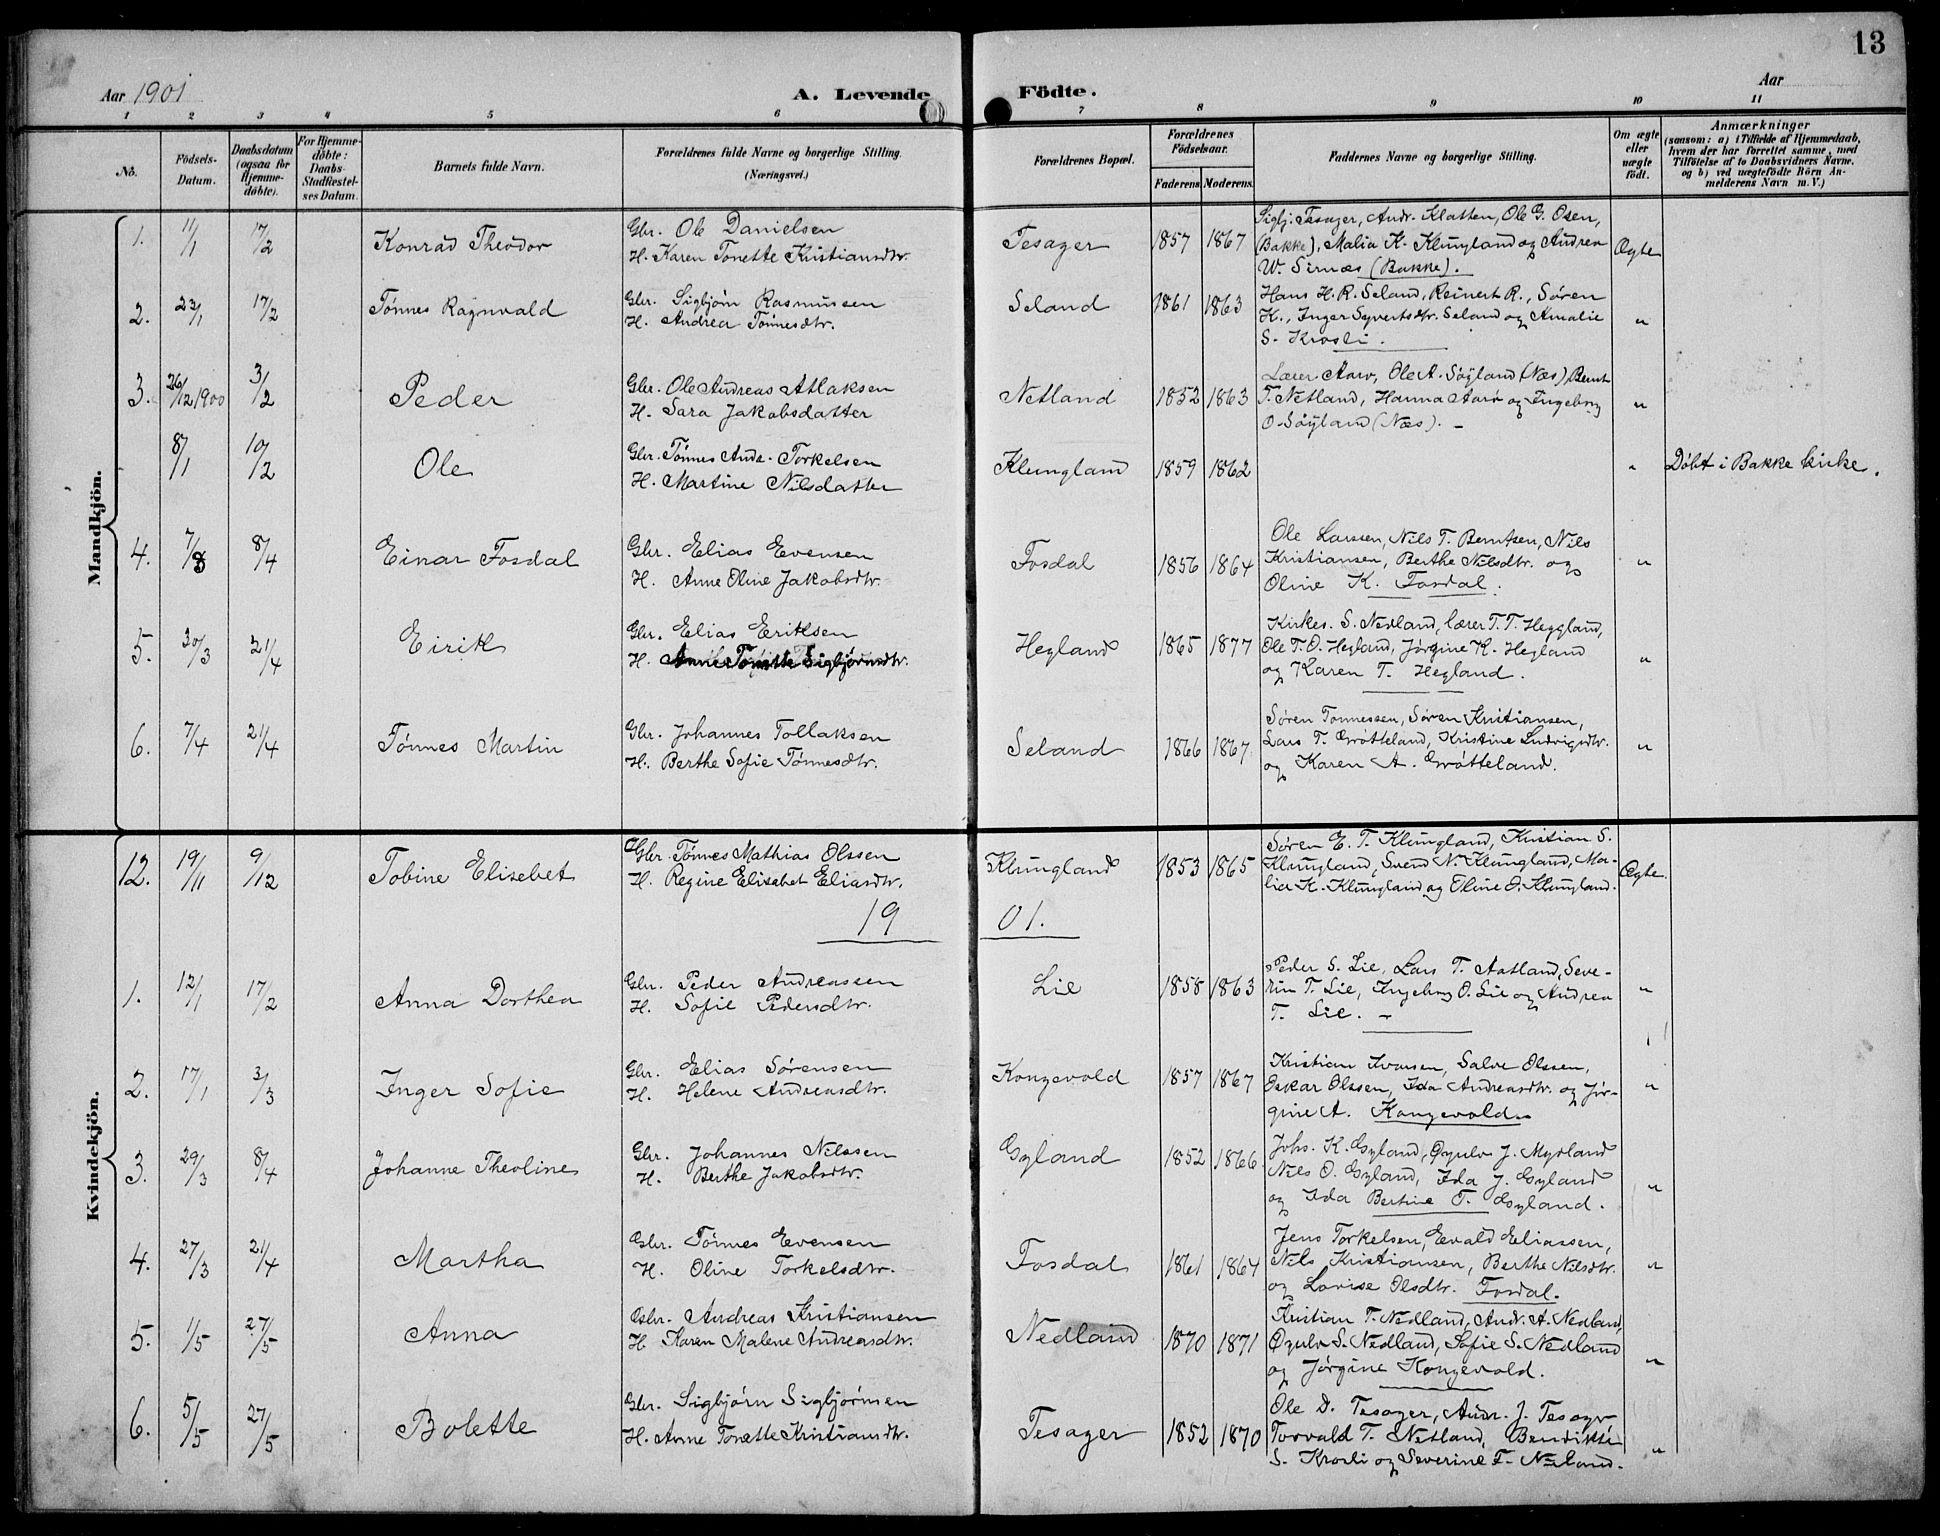 13
Aar 1901
A. Levende Födte.
Aar
1 2 3 4 5 6 7 8 9 10 11
No.
Födsels-Datum.
Daabsdatum (ogsaa for Hjemme-döbte).
For Hjemme-döbte: Daabs-Stadfæstel-ses Datum.
Barnets fulde Navn.
Forældrenes fulde Navne og borgerlige Stilling. (Næringsvei.)
Forældrenes Bopæl.
Forældrenes Födselsaar.
Faderens. Moderens.
Faddernes Navne og borgerlige Stilling.
Om ægte eller uægte födt.
Anmærkninger
(saasom: a) i Tilfælde af Hjemmedaab, hvem der har forrettet samme, med Tilföielse af to Daabsvidners Navne. og b) ved uægtefödte Börn An-melderens Navn m. V.)
Mandkjön.
1. 11/1 17/2 Konrad Theodor
Gbr. Ole Danielsen
H. Karen Tonette Kristiansdtr.
Tesager 1857 1867
Sigbj. Tesager, Andr. Klatten, Ole G. Osen,
(Bakke), Malia K. Klungland og Andrea
W. Sirnæs (Bakke).
Ægte
2. 23/1 17/2 Tønnes Ragnvald
Gbr. Sigbjørn Rasmussen
H. Andrea Tønnesdtr.
Seland 1861 1863
Hans H. R. Seland, Reinert R., Søren
K., Inger Syvertsdtr. Seland og Amalie
S. Krosli.
"
3. 26/12 1900 3/2 Peder
Gbr. Ole Andreas Atlaksen
H. Sara Jakobsdatter
Netland 1852 1863
Lærer Aarø, Ole A. Søyland (Næs), Bernt
T. Netland, Hanna Aarø og Ingeborg
O. Søyland (Næs). -
"
8/1 10/2 Ole
Gbr. Tønnes Ands. Torkelsen
H. Martine Nilsdatter
Klungland 1859 1862
" Døbt i Bakke kirke.
4. 7/3 8/4 Einar Fosdal
Gbr. Elias Evensen
H. Anne Oline Jakobsdtr.
Fosdal 1856 1864
Ole Larssen, Nils T. Berntsen, Nils
Kristiansen, Berthe Nilsdtr. og
Oline K. Fosdal.
"
5. 20/3 21/4 Eirik
Gbr. Elias Eriksen
H. Anne Tonette Sigbjørnsdtr.
Hegland 1865 1877
Kirkes. S. Nedland, lærer T. T. Heggland,
Ole T. O. Hegland, Jørgine K. Hegland
og Karen T. Hegland.
"
6. 7/4 21/4 Tønnes Martin
Gbr. Johannes Tollaksen
H. Berthe Sofie Tønnesdtr.
Seland 1866 1867
Søren Tønnessen, Søren Kristiansen,
Lars T. Grøtteland, Kristine Ludvigsdtr.
og Karen A. Grøtteland.
"
Kvindekjön.
12. 19/11 9/12 Tobine Elisebet
Gbr. Tønnes Mathias Olssen
H. Regine Elisabet Eliasdtr.
Klungland 1853 1865
Søren E. T. Klungland, Kristian S.
Klungland, Svend N. Klungland, Ma-
lia K. Klungland og Oline O. Klungland.
Ægte
1901.
1. 12/1 17/2 Anna Dorthea
Gbr. Peder Andreassen
H. Sofie Pedersdtr.
Lie 1858 1863
Peder S. Lie, Lars T. Aatland, Seve-
rin T. Lie, Ingeborg O. Lie og Andrea
T. Lie. -
"
2. 17/1 3/3 Inger Sofie
Gbr. Elias Sørensen
H. Helene Andreasdtr.
Kongevold 1857 1867
Kristian Ivarsen, Salve Olssen,
Oskar Olssen, Ida Andreasdtr. og Jør-
gine A. Kongevold.
"
3. 29/3 8/4 Johanne Theoline
Gbr. Johannes Nilssen
H. Berthe Jakobsdtr.
Gyland 1852 1866
Johs. K. Gyland, Øyulv J. Myrland
Nils O. Gyland, Ida J. Gyland
og Ida Bertine T. Gyland.
"
4. 27/3 21/4 Martha
Gbr. Tønnes Evensen
H. Oline Torkelsdtr.
Fosdal 1861 1864
Jens Torkelsen, Evald Eliassen,
Nils Kristiansen, Berthe Nilsdtr.
og Lovise Olsdtr. Fosdal.
"
5. 1/5 27/5 Anna
Gbr. Andreas Kristiansen
H. Karen Malene Andreasdtr.
Nedland 1870 1871
Kristian T. Nedland, Andr. A. Nedland,
Øyulv S. Nedland, Sofie S. Nedland
og Jørgine Kongevold.
"
6. 5/5 27/5 Bolette
Gbr. Sigbjørn Sigbjørnsen
H. Anne Tonette Kristiansdtr.
Tesager 1852 1870
Ole D. Tesager, Andr. J. Tesager
Torvald T. Netland, Bendikte
S. Krosli og Severine F. Netland.
"